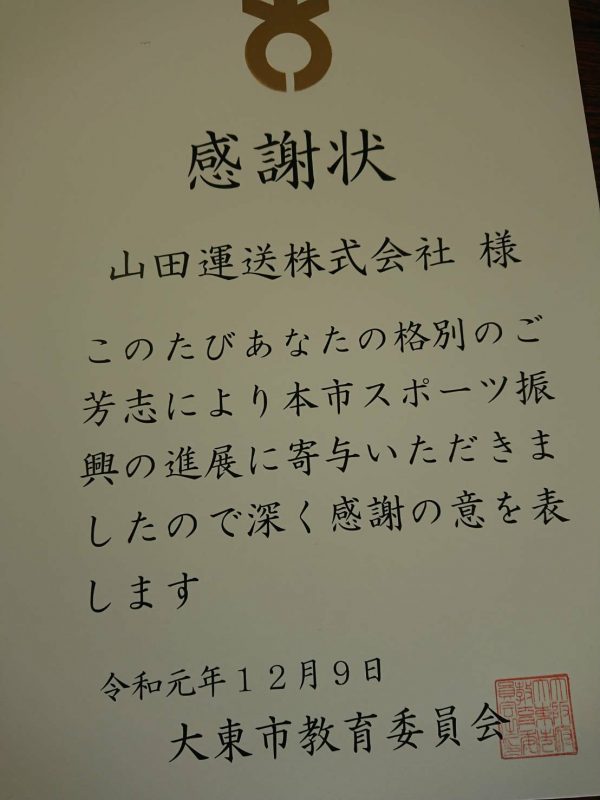 感謝状
山田運送株式会社 様
このたびあなたの格別のご
芳志により本市スポーツ振
興の進展に寄与いただきま
したので深く感謝の意を表
します
令和元年12月9日
大東市教育委員会